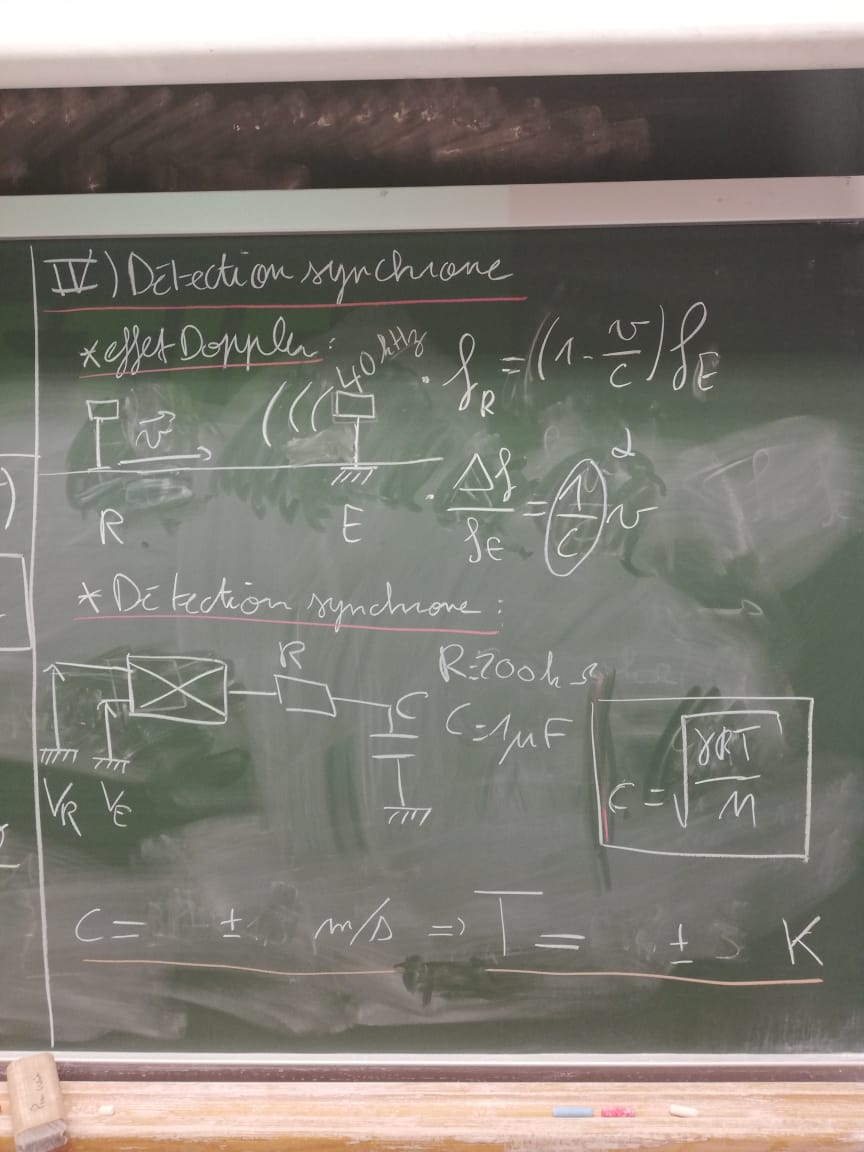 IV) Détection synchrone
* effet Doppler :
40 kHz
. f_R = (1 - v/c) f_E
v
R
E
. Δf/f_E = (1/c) v
α
* Détection synchrone :
R
C
V_R V_E
R=200kΩ
C=1μF
c = √(γRT/M)
c = ± m/s => T = ± K